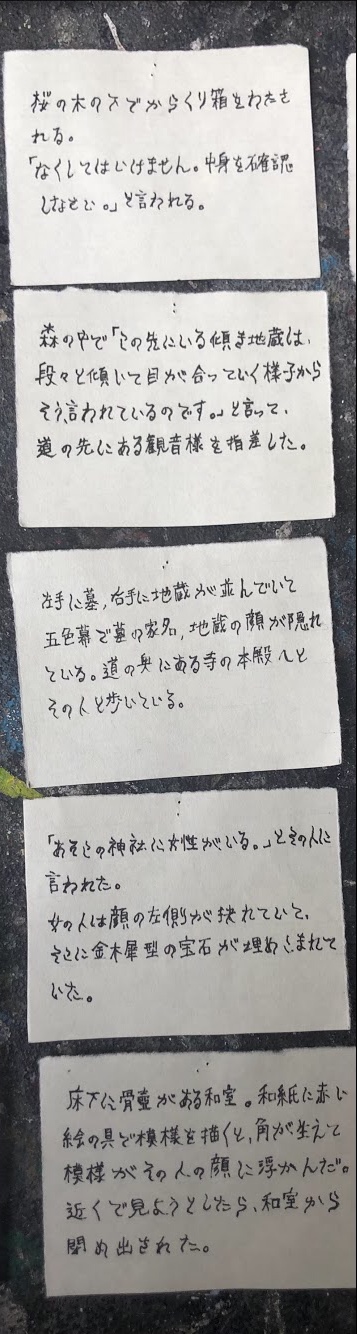 桜の木の下でからくり箱をわたさ
れる。
「なくしてはいけません。中身を確認
しなさい。」と言われる。
森の中で「この先にいる傾き地蔵は、
段々と傾いて目が合っていく様子から
そう言われているのです。」と言って、
道の先にある観音様を指差した。
左手に墓、右手に地蔵が並んでいて
五色幕で墓の家名、地蔵の顔が隠れ
ている。道の奥にある寺の本殿へと
その人と歩いている。
「あそこの神社に女性がいる。」とその人に
言われた。
女の人は顔の左側が抉れていて、
そこに金木犀型の宝石が埋めこまれて
いた。
床下に骨壺がある和室。和紙に赤い
絵の具で模様を描くと、角が生えて
模様がその人の顔に浮かんだ。
近くで見ようとしたら、和室から
閉め出された。